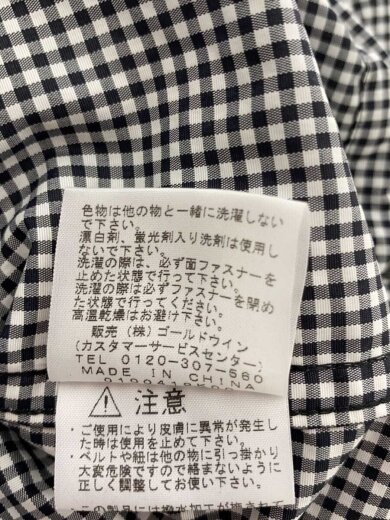 色物は他の物と一緒に洗濯しない
で下さい。
漂白剤、蛍光剤入り洗剤は使用し
ないで下さい。
洗濯の際は、必ず面ファスナーを
止めた状態で行って下さい。
洗濯の際は必ずファスナーを閉め
た状態で行ってください。
高温乾燥はお避け下さい。
販売（株）ゴールドウイン
(カスタマーサービスセンター)
TEL 0120-307-560
MADE IN CHINA
⚠ 注意
・ご使用により皮膚に異常が発生し
た時は使用を止めて下さい。
・ベルトや紐は他の物に引っ掛かり
大変危険ですので絡まないように
正しく調整してお使い下さい。
・この製品には撥水加工が施されて